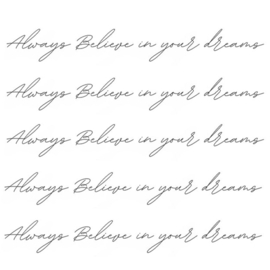 Always Believe in your dreams
Always Believe in your dreams
Always Believe in your dreams
Always Believe in your dreams
Always Believe in your dreams